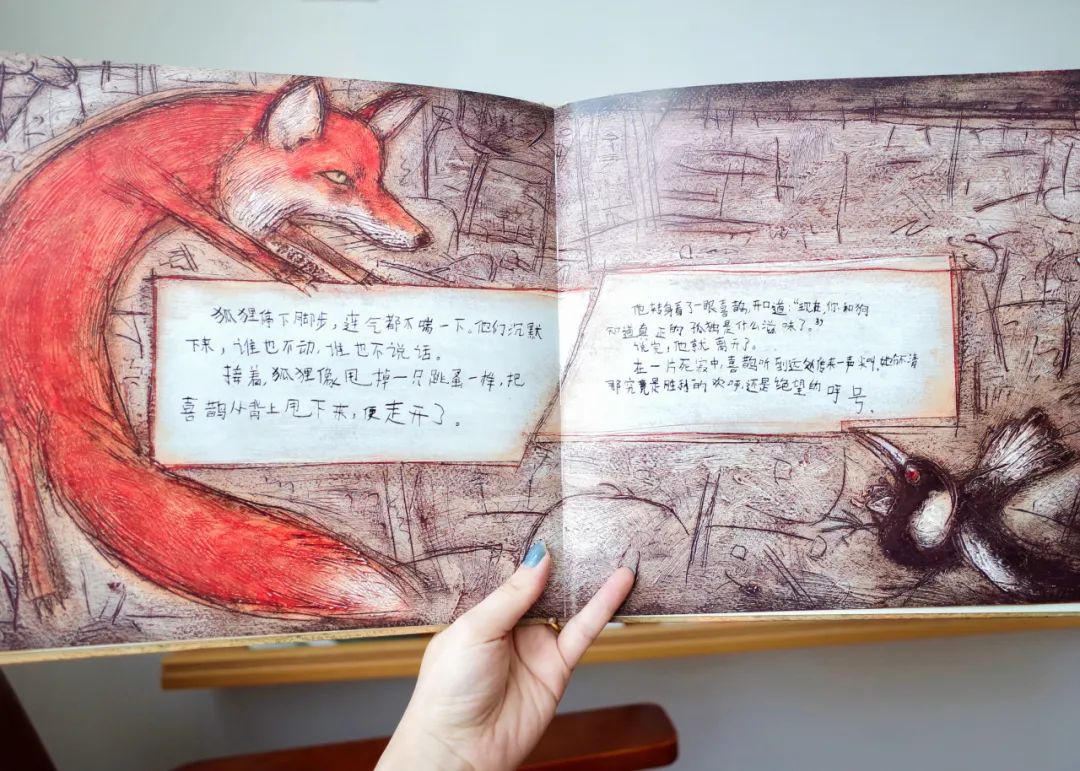 狐狸停下脚步，连气都不喘一下。他们沉默
下来，谁也不动，谁也不说话。
接着，狐狸像甩掉一只跳蚤一样，把
喜鹊从背上甩下来，便走开了。
他转身看了一眼喜鹊，开口道：“现在，你和狗
知道真正的孤独是什么滋味了。”
说完，他就离开了。
在一片死寂中，喜鹊听到远处传来一声尖叫。她分不清
那究竟是胜利的欢呼，还是绝望的呼号。